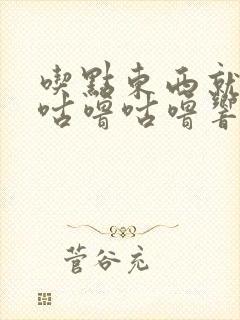 喫點東西就
咕嚕咕嚕響
菅谷充